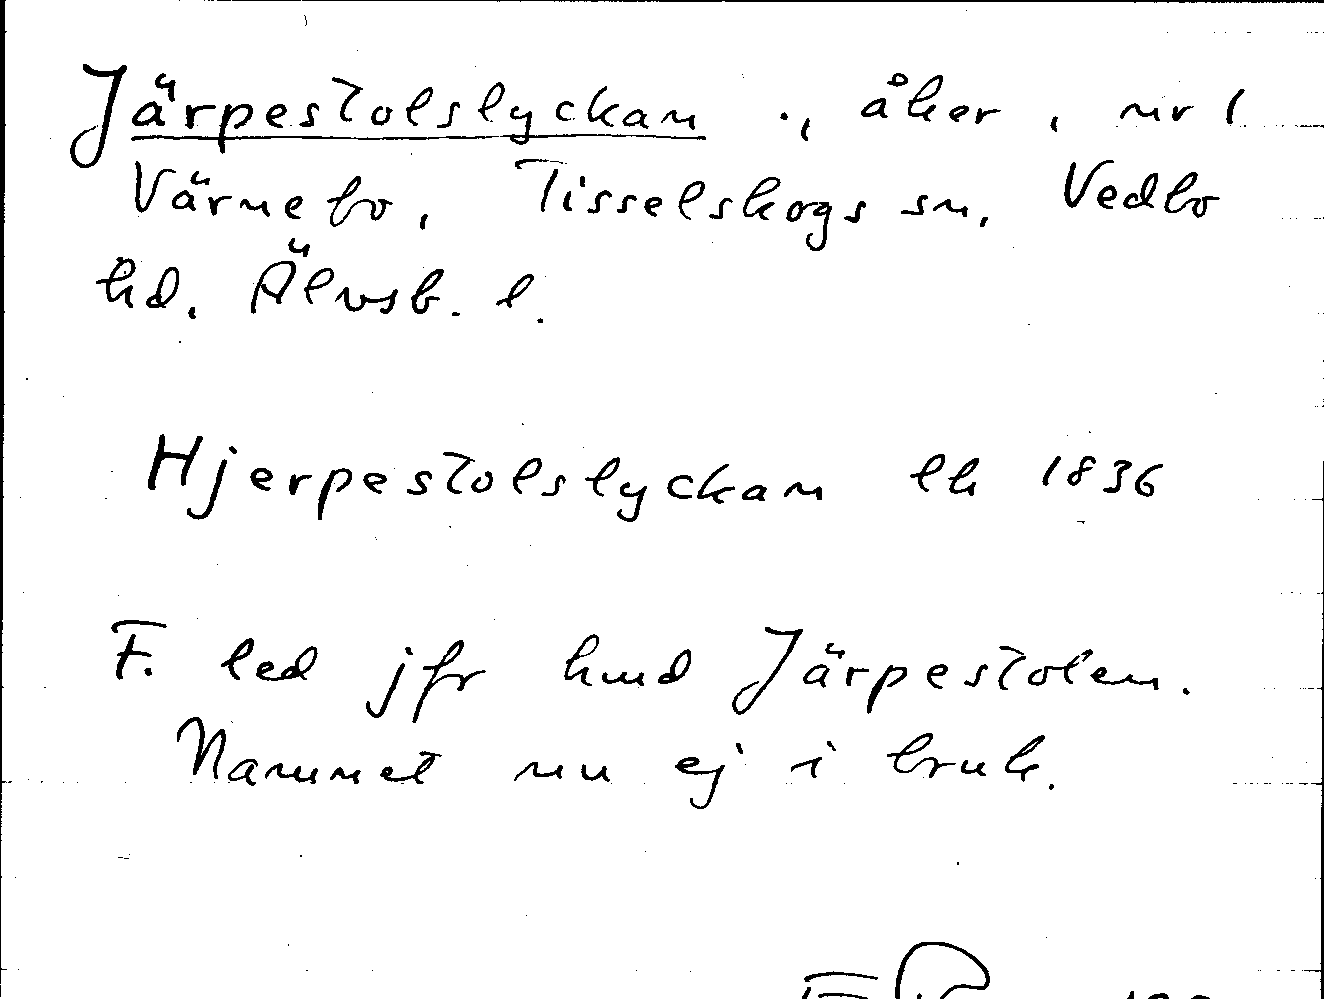 Järpestolslyckan ., åker, nr 1
Värnebo, Tisselskogs sn, Vedbo
hd. Älvsb. l.
Hjerpestolslyckan lh 1836
F. led jfr hmd Järpestolen.
Namnet nu ej i bruk.